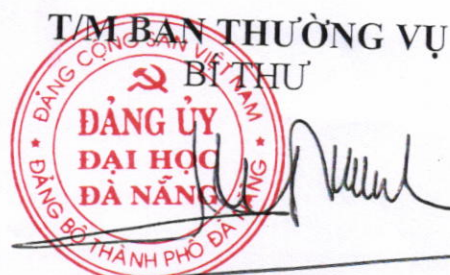 T/M BAN THƯỜNG VỤ
BÍ THƯ
ĐẢNG CỘNG SẢN VIỆT NAM
ĐẢNG ỦY
ĐẠI HỌC
ĐÀ NẴNG
ĐẢNG BỘ THÀNH PHỐ ĐÀ NẴNG